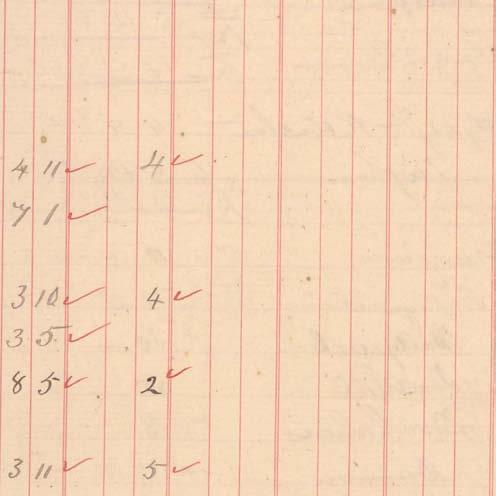 4 11 ✓ 4 ✓
7 1 ✓
3 10 ✓ 4 ✓
3 5 ✓
8 5 ✓ 2 ✓
3 11 ✓ 5 ✓